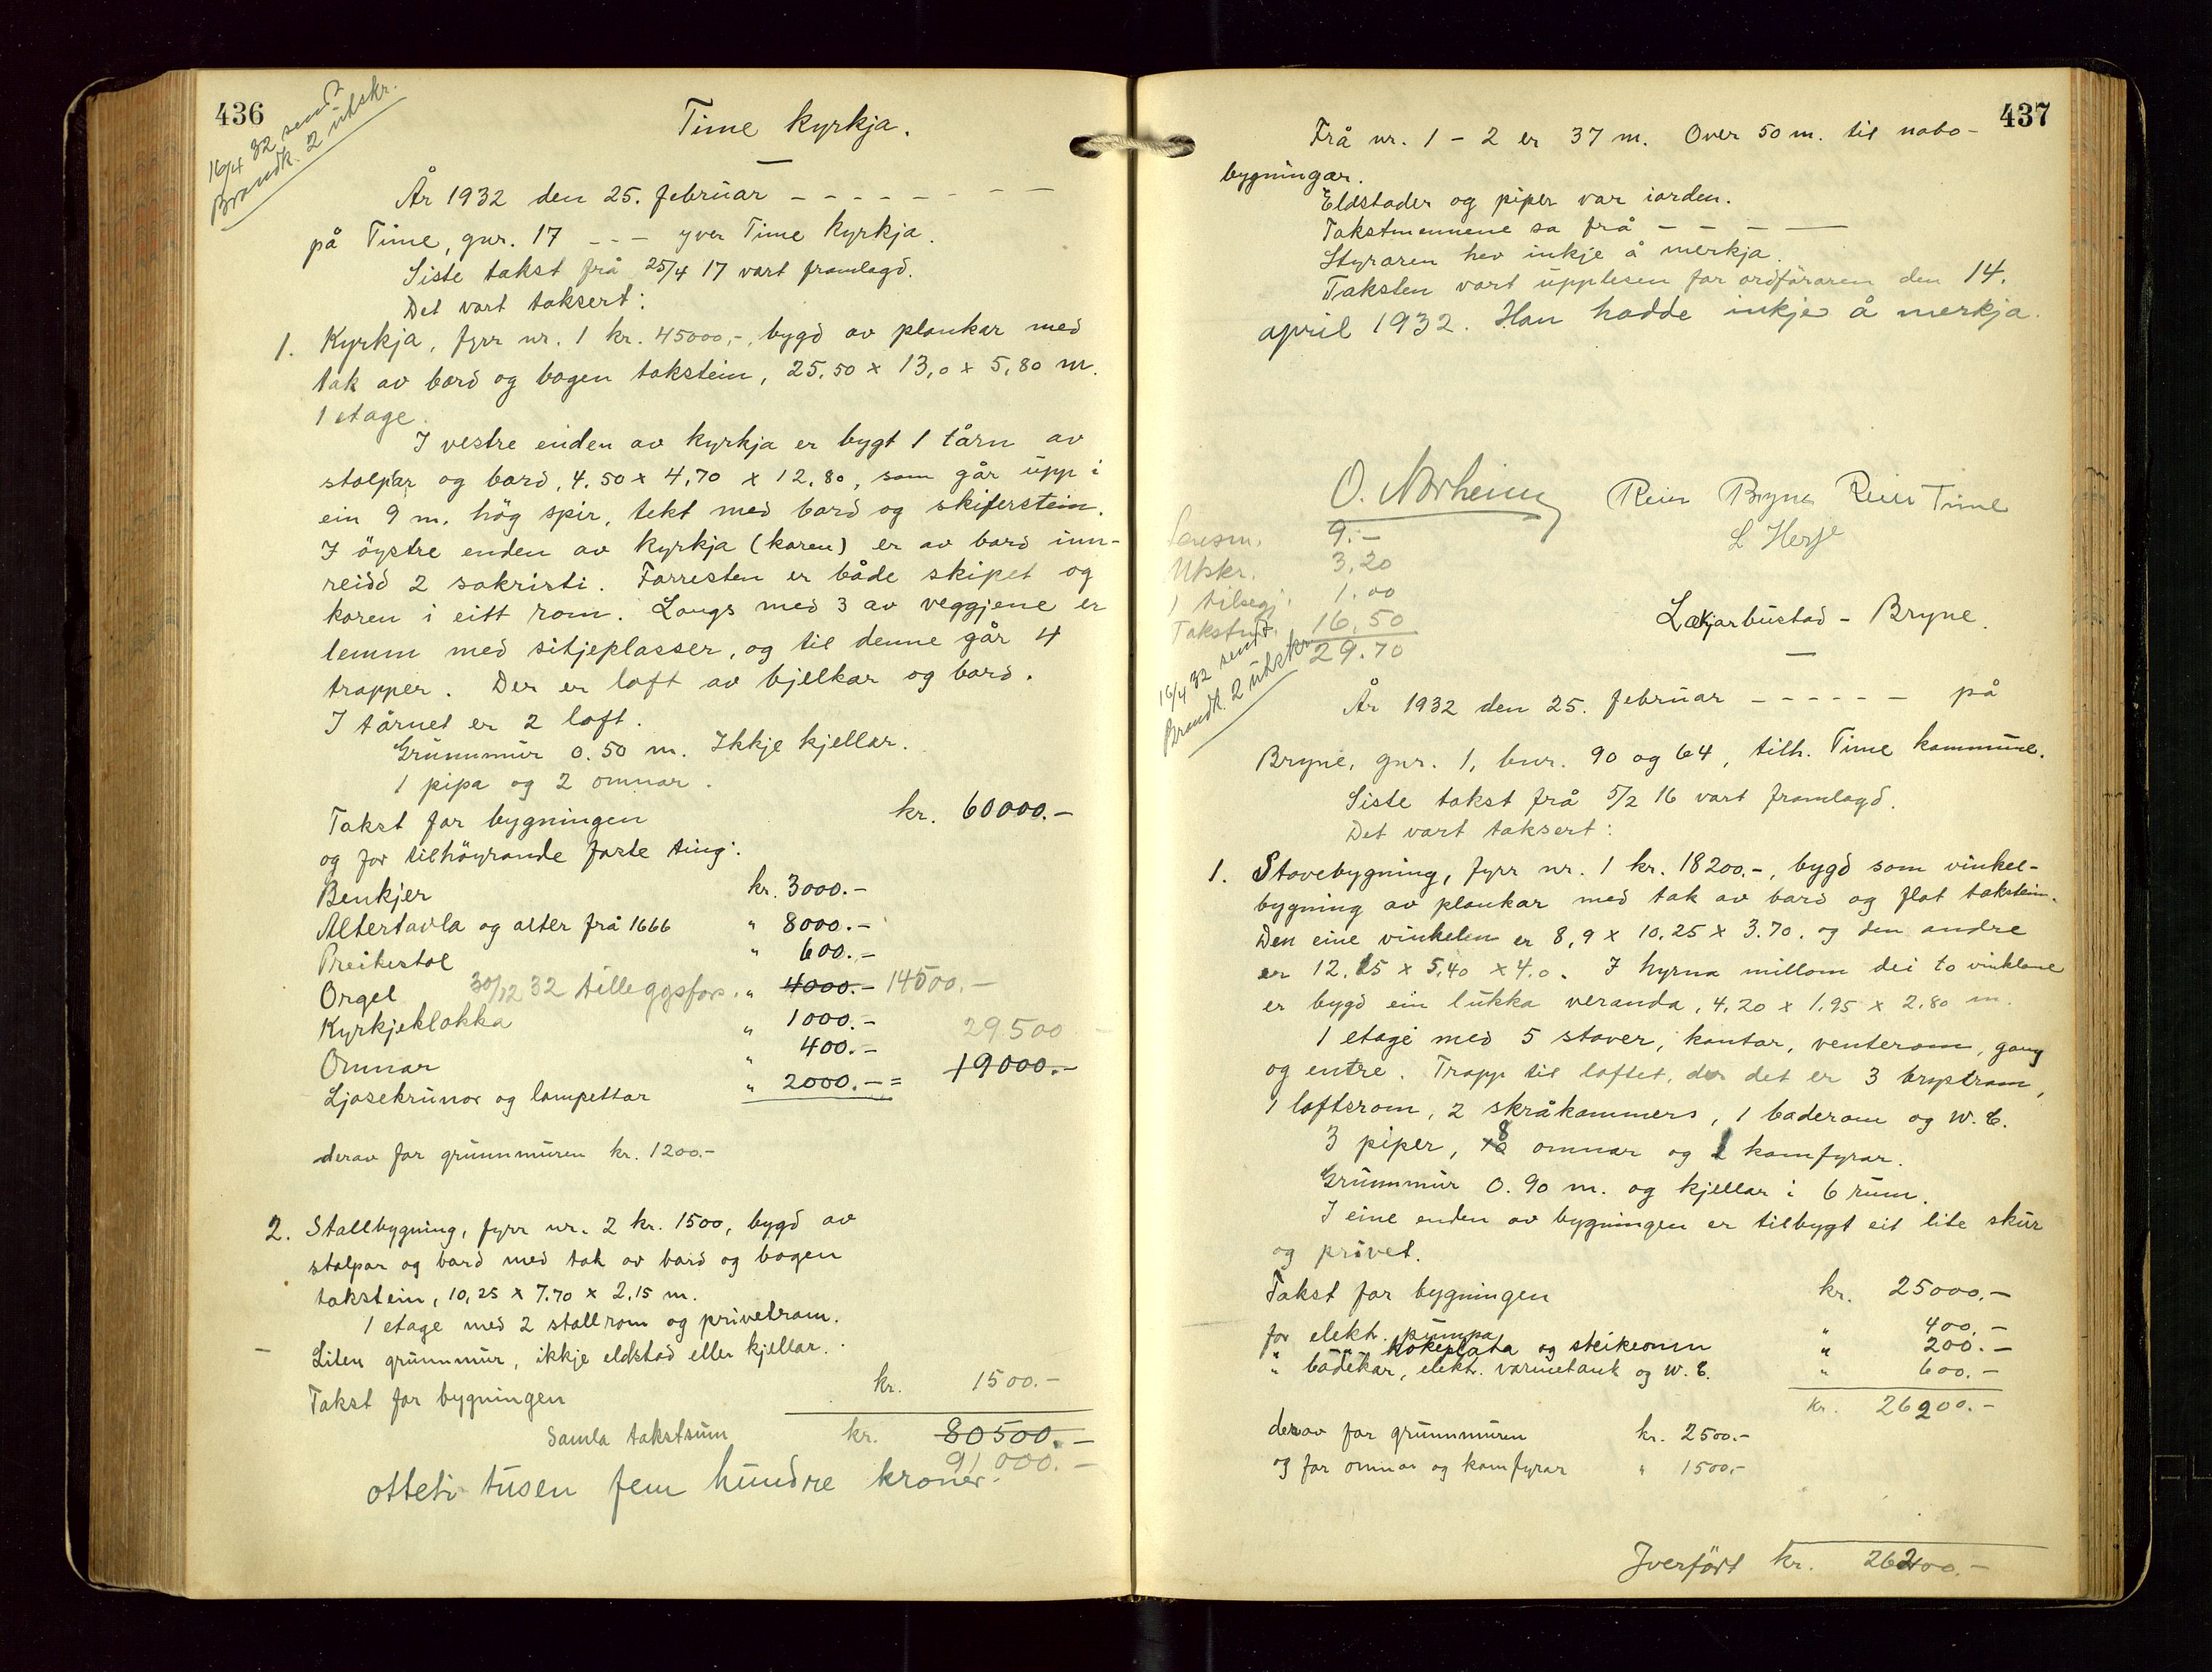 436
16/4 32 sendt
Brandk. 2 utskr.
Time kyrkja.
År 1932 den 25. februar - - - - - - - -
på Time, gnr. 17 - - - yver Time kyrkja.
Siste takst frå 25/4 17 vart framlagd.
Det vart taksert:
1. Kyrkja, fyrr nr. 1 kr. 45000,-, bygd av plankar med
tak av bord og bogen takstein, 25,50 x 13,0 x 5,80 m.
1 etage.
I vestre enden av kyrkja er bygt 1 tårn av
stolpar og bord, 4.50 x 4,70 x 12,80, som går upp i
ein 9 m. hög spir, tekt med bord og skiferstein.
I öystre enden av kyrkja (koren) er av bord inn-
reidd 2 sakristi. Forresten er både skipet og
koren i eitt rom. Langs med 3 av veggjene er
lemm med sitjeplasser, og til denne går 4
trapper. Der er loft av bjelkar og bord.
I tårnet er 2 loft.
Grunnmur 0.50 m. Ikkje kjellar.
1 pipa og 2 omnar.
Takst for bygningen kr. 60000.-
og for tilhöyrande faste ting:
Benkjer kr. 3000.-
Altertavla og alter frå 1666 " 8000.-
Preikestol " 600.-
Orgel 30/12 32 tilleggsfors. " 4000.- 14500.-
Kyrkjeklokka " 1000.- 29500
Omnar " 400.-
Ljosekrunor og lampettar " 2000.- = 19000.-
derav for grunnmuren kr. 1200.-
2. Stallbygning, fyrr nr. 2 kr. 1500, bygd av
stolpar og bord med tak av bord og bogen
takstein, 10,25 x 7.70 x 2,15 m.
1 etage med 2 stallrom og privetrom.
Liten grunnmur, ikkje eldstad eller kjellar.
Takst for bygningen kr. 1500.-
Samla takstsum kr. 80500.-
91000.-
otteti tusen fem hundre kroner.
437
Frå nr. 1 - 2 er 37 m. Over 50 m. til nabo-
bygningar.
Eldstader og piper var iorden.
Takstmennene sa frå - - - -
Styraren hev inkje å merkja.
Taksten vart upplesen for ordföraren den 14.
april 1932. Han hadde inkje å merkja.
O. Norheim Reier Bryne Reier Time
L Herje
Lensm. 9.-
Utskr. 3,20
1 tilsegj. 1.00
Takstm. 16,50
29.70
16/4 32 sendt
Brandk. 2 utskr.
Lækjarbustad - Bryne.
År 1932 den 25. februar - - - - - - på
Bryne, gnr. 1, bnr. 90 og 64, tilh. Time kommune.
Siste takst frå 5/2 16 vart framlagd.
Det vart taksert:
1. Stovebygning, fyrr nr. 1 kr. 18200.-, bygd som vinkel-
bygning av plankar med tak av bord og flat takstein.
Den eine vinkelen er 8,9 x 10.25 x 3.70. og den andre
er 12.15 x 5,40 x 4.0. I hyrna millom dei to vinklane
er bygd ein lukka veranda, 4,20 x 1,95 x 2,80 m.
1 etage med 5 stover, kontor, venterom, gang
og entre. Trapp til loftet, der det er 3 kvistrom,
1 loftsrom, 2 skråkammers, 1 baderom og W.C.
3 piper, 8 omnar og 1 komfyrar.
Grunnmur 0.90 m. og kjellar i 6 rum.
I eine enden av bygningen er tilbygt eit lite skur
og privet.
Takst for bygningen kr. 25000.-
for elekt. pumpa " 400.-
" " kokeplata og steikeomn " 200.-
" badekar, elekt. varmetank og W.C. " 600.-
kr. 26200.-
derav for grunnmuren kr. 2500.-
og for omnar og komfyrar " 1500.-
Yverfört kr. 26200.-